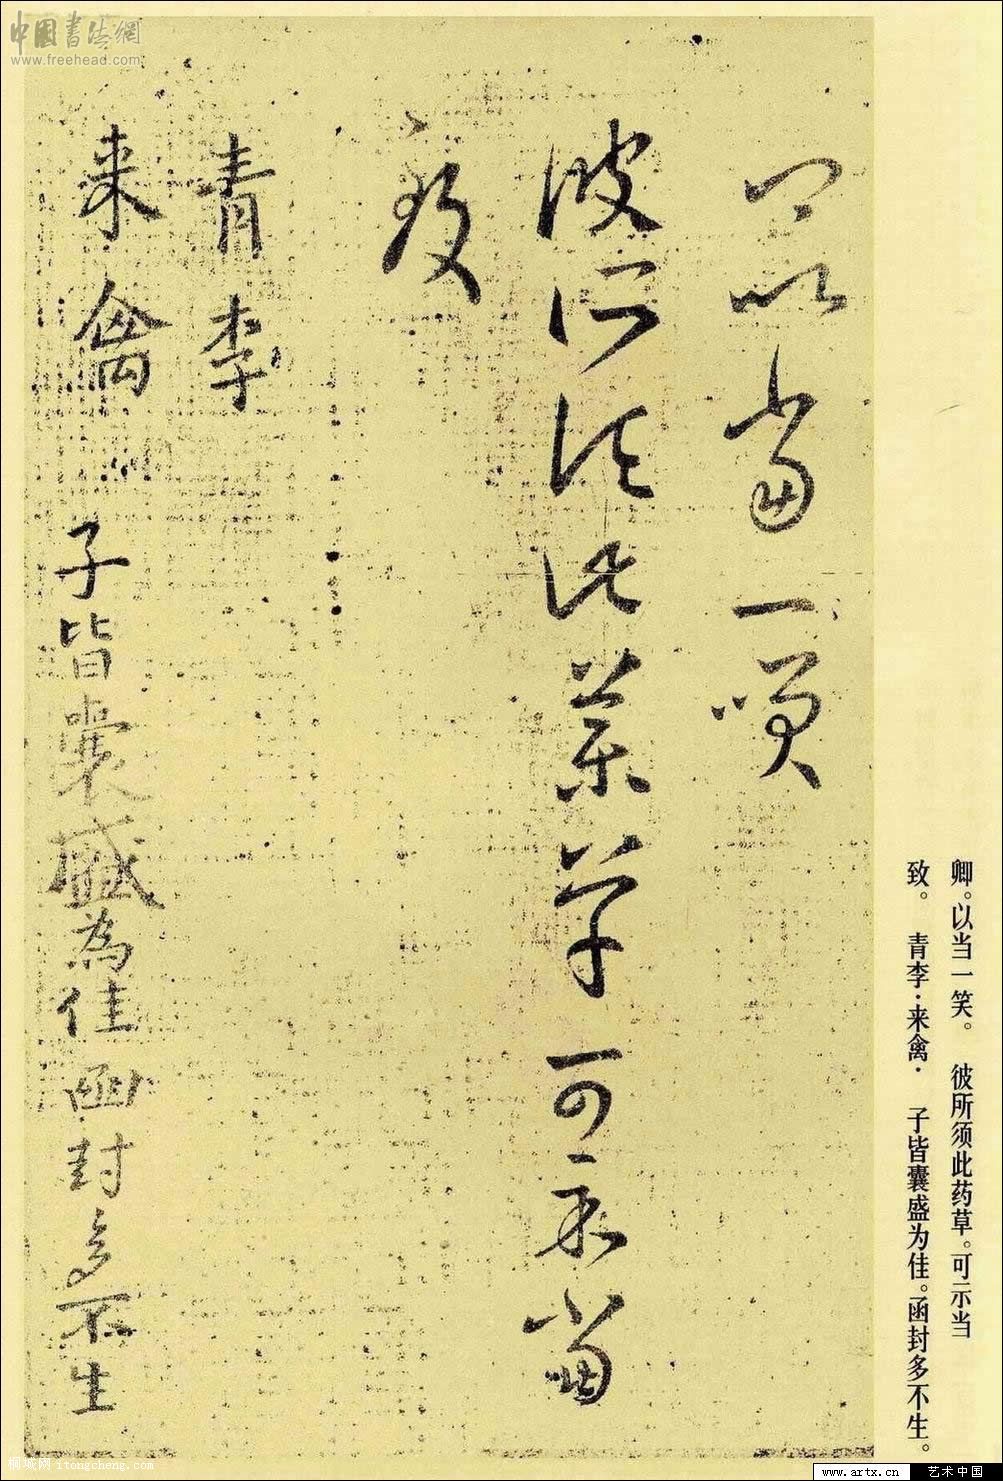 卿以当一笑
彼所须此药草可示当
致
青李
来禽
子皆囊盛为佳函封多不生
卿。以当一笑。 彼所须此药草。可示当
致。 青李·来禽· 子皆囊盛为佳。函封多不生。
中国书法網
www.freehead.com
桐城网 itongcheng.com
www.artx.cn 艺术中国